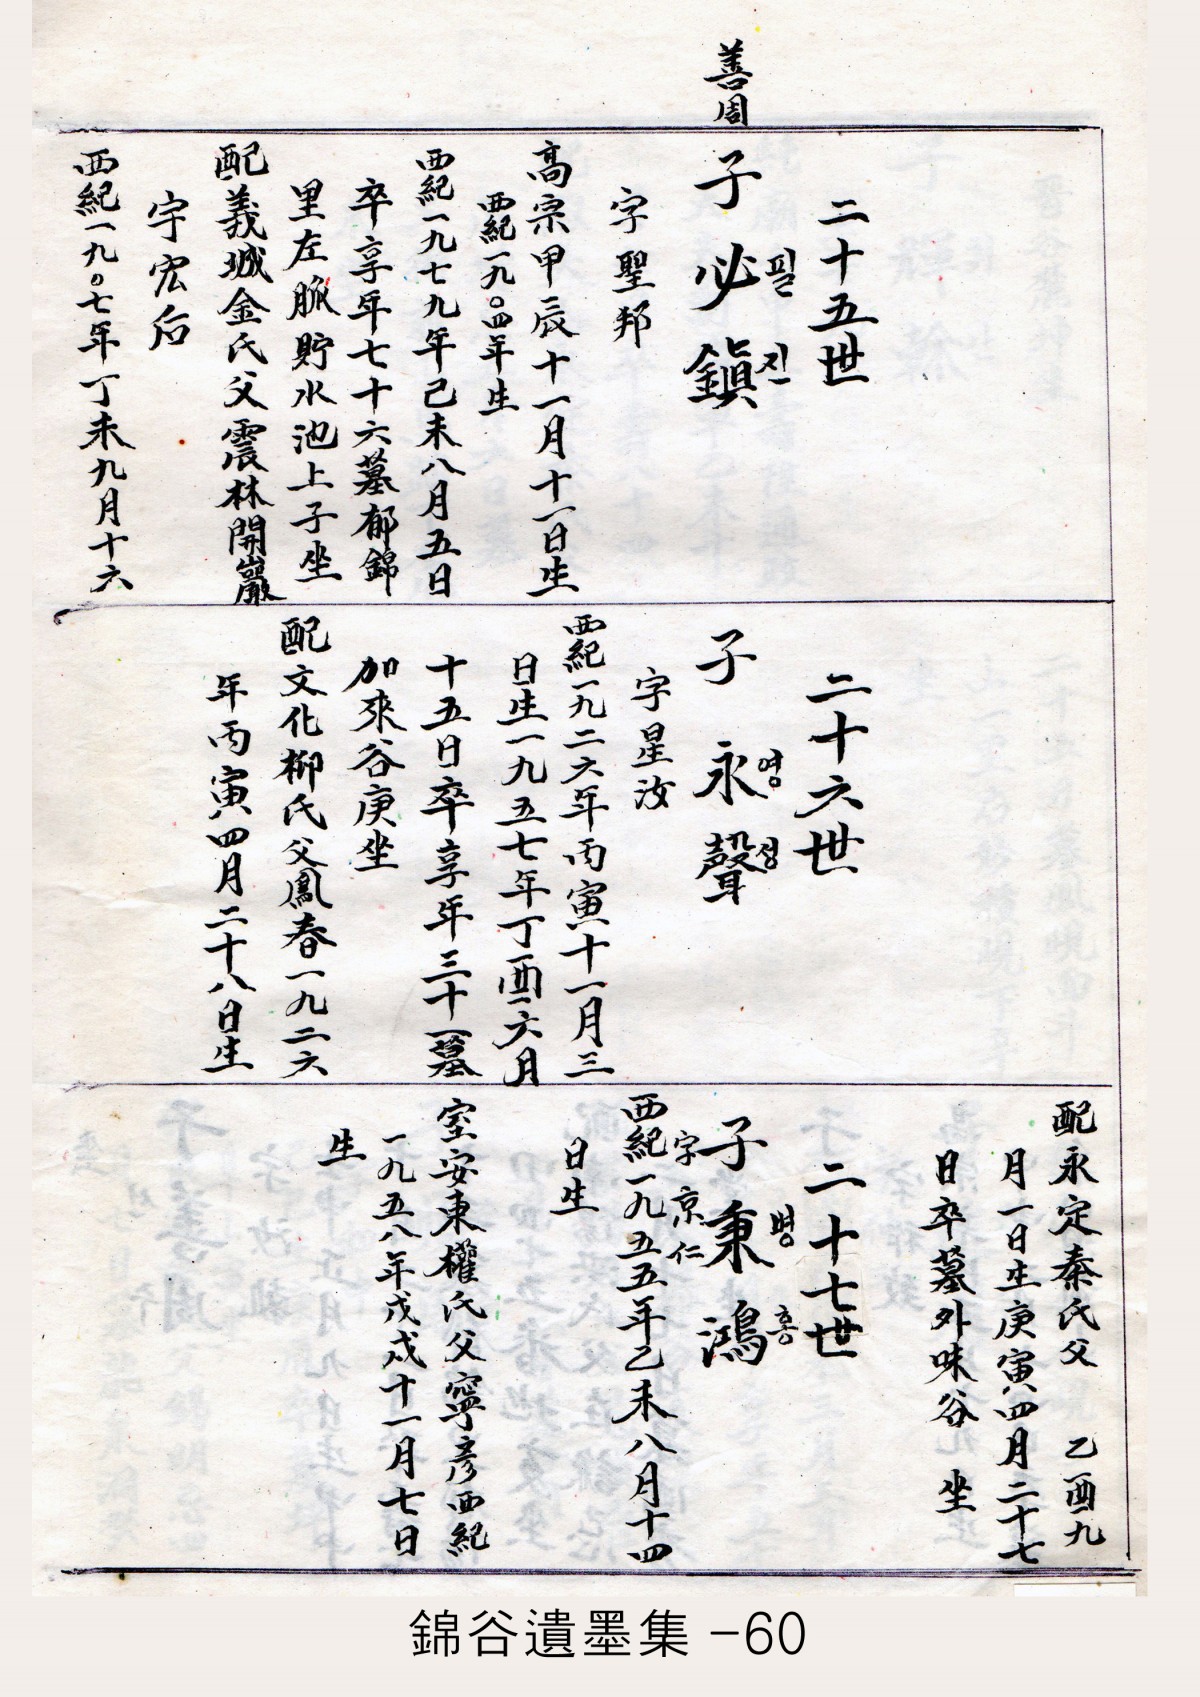 善周
二十五世
子 必鎭
필 진
字聖邦
高宗甲辰十一月十一日生
西紀一九〇四年生
西紀一九七九年己未八月五日
卒享年七十六墓郁錦
里左脈貯水池上子坐
配義城金氏父震林開巖
宇宏后
西紀一九〇七年丁未九月十六
二十六世
子 永聲
영 성
字星汝
西紀一九二六年丙寅十一月三
日生一九五七年丁酉六月
十五日卒享年三十一墓
加來谷庚坐
配文化柳氏父鳳春一九二六
年丙寅四月二十八日生
配永定秦氏父 乙酉九
月一日生庚寅四月二十七
日卒墓外味谷 坐
二十七世
子秉鴻
병 홍
字京仁
西紀一九五五年乙未八月十四
日生
室安東權氏父寧彦西紀
一九五八年戊戌十一月七日
生
錦谷遺墨集 -60